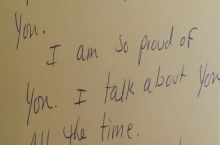 You.
I am so proud of
You. I talk about You
all the time.